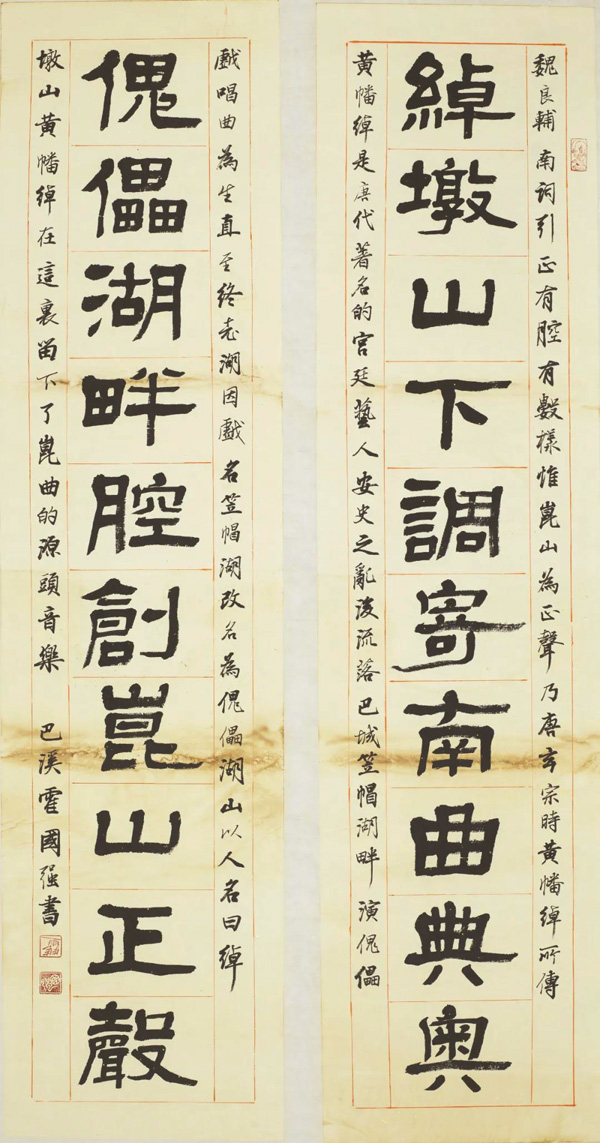 魏良輔南詞引正有腔有數樣惟崑山為正聲乃唐玄宗時黃幡綽所傳
綽墩山下調寄南曲典奧
黃幡綽是唐代著名的宮廷藝人安史之亂後流落巴城笠帽湖畔演傀儡
戲唱曲為生直至終老湖因戲名笠帽湖改名為傀儡湖山以人名曰綽
傀儡湖畔腔創崑山正聲
墩山黃幡綽在這裏畱下了崑曲的源頭音樂 巴溪霍國強書